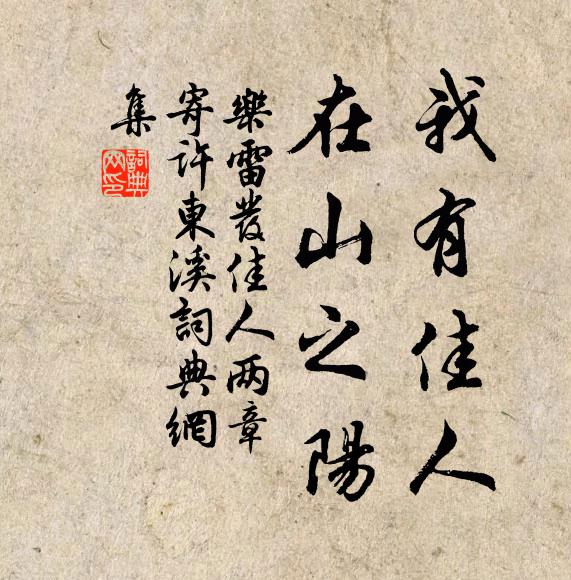 我有佳人
在山之陽
樂雷發佳人两章
寄許東溪詞典網
集
詞典网印